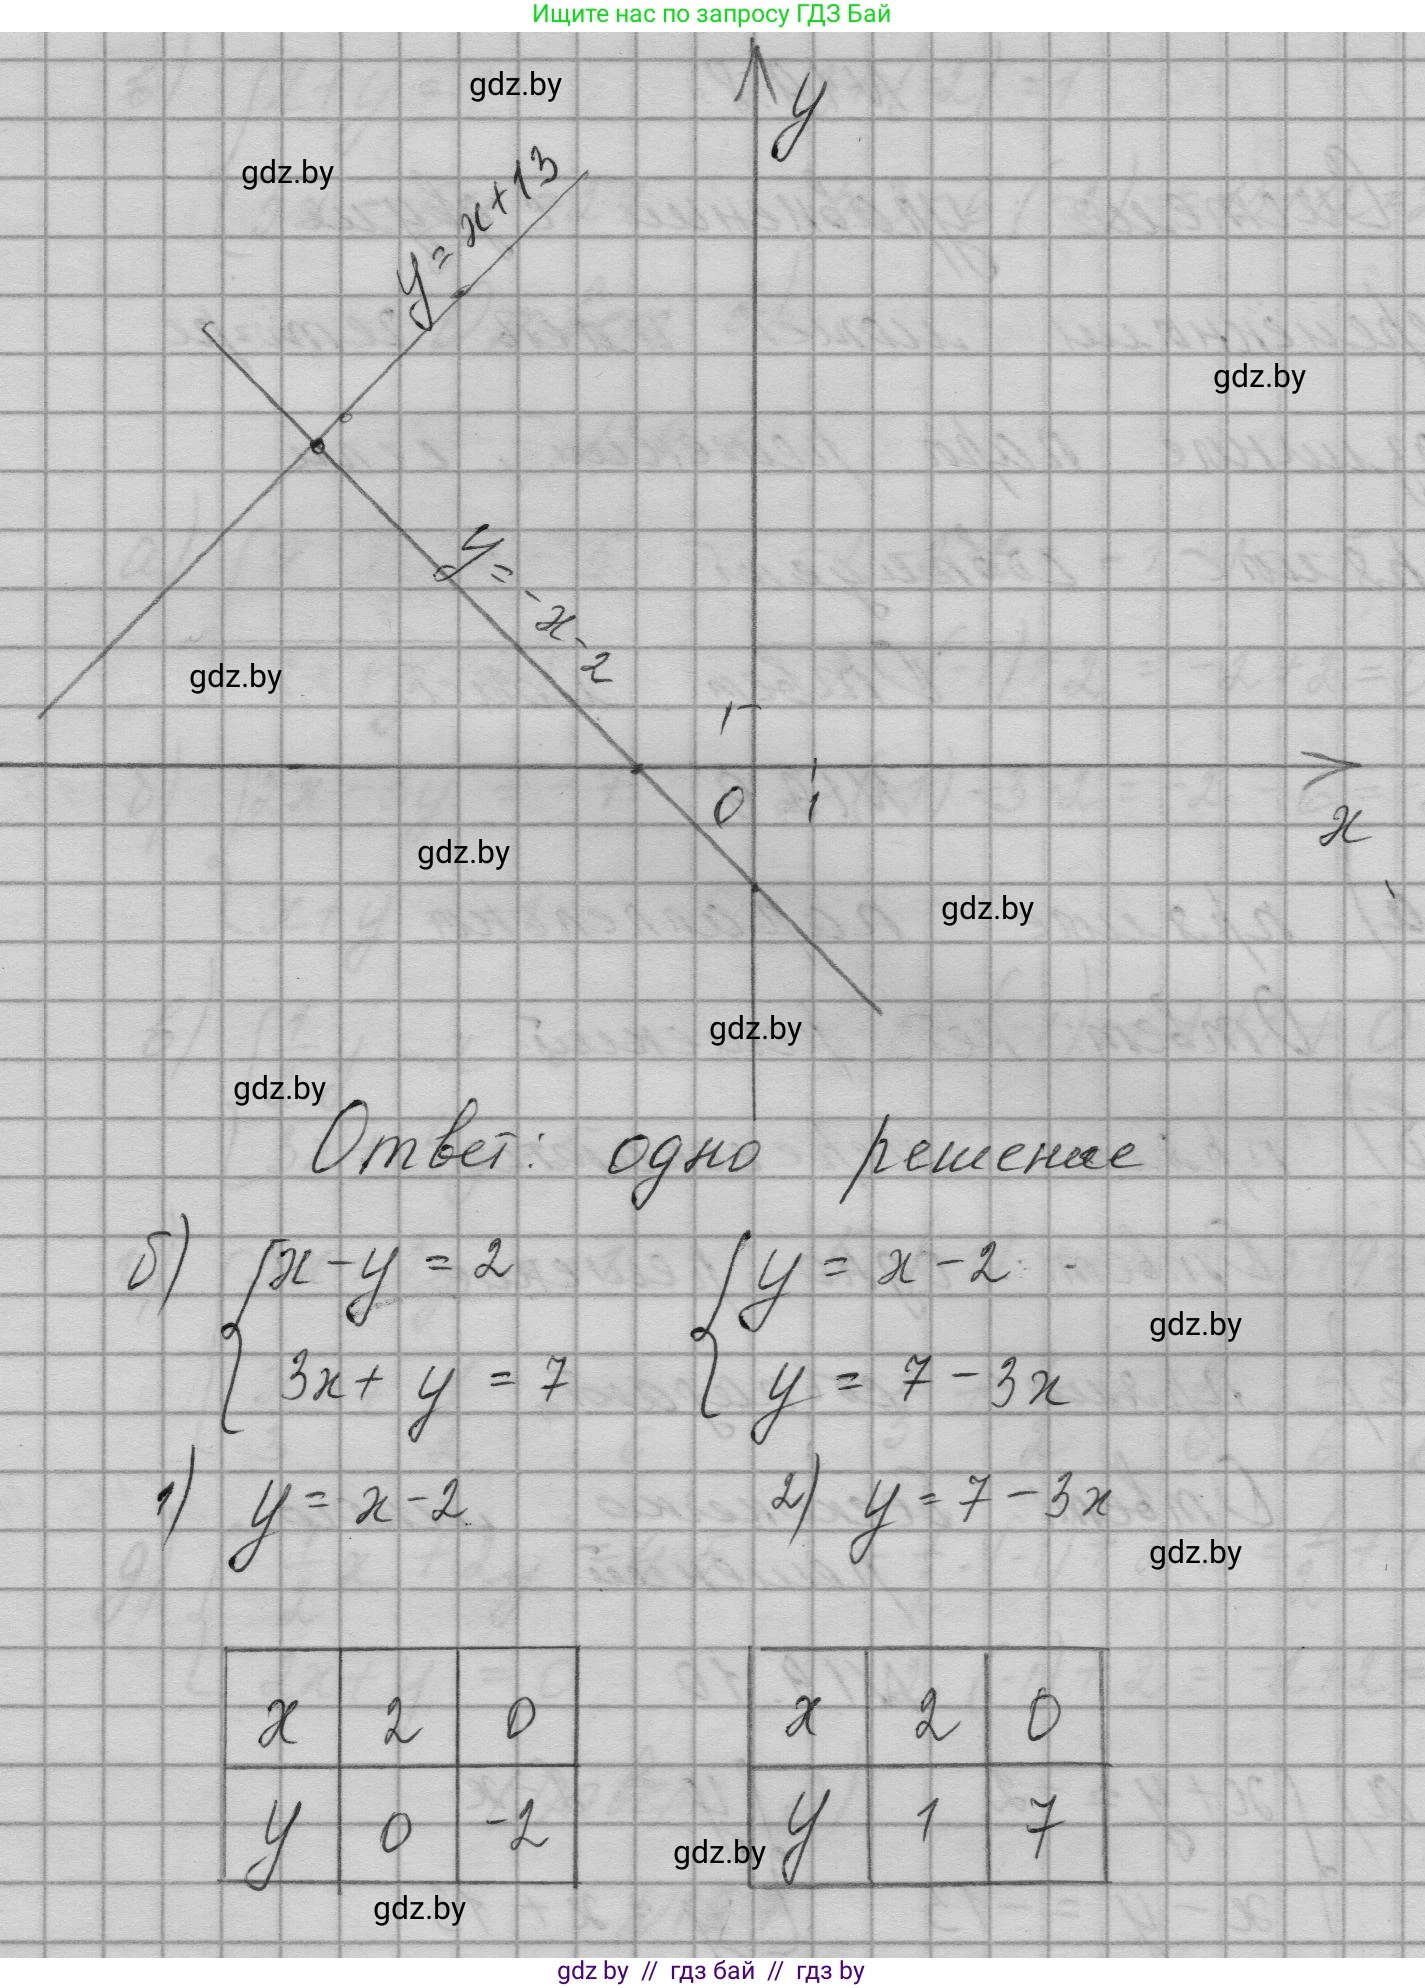 Ищите нас по запросу ГДЗ Бай
gdz.by
y
gdz.by
y = x + 13
gdz.by
y = -x - 2
gdz.by
1
0 1
x
gdz.by
gdz.by
gdz.by
gdz.by
Ответ: одно решение
б) { x - y = 2 { y = x - 2
gdz.by
3x + y = 7 y = 7 - 3x
1) y = x - 2 2) y = 7 - 3x
gdz.by
x 2 0 x 2 0
y 0 -2 y 1 7
gdz.by
gdz.by
gdz by // гдз бай // гдз by